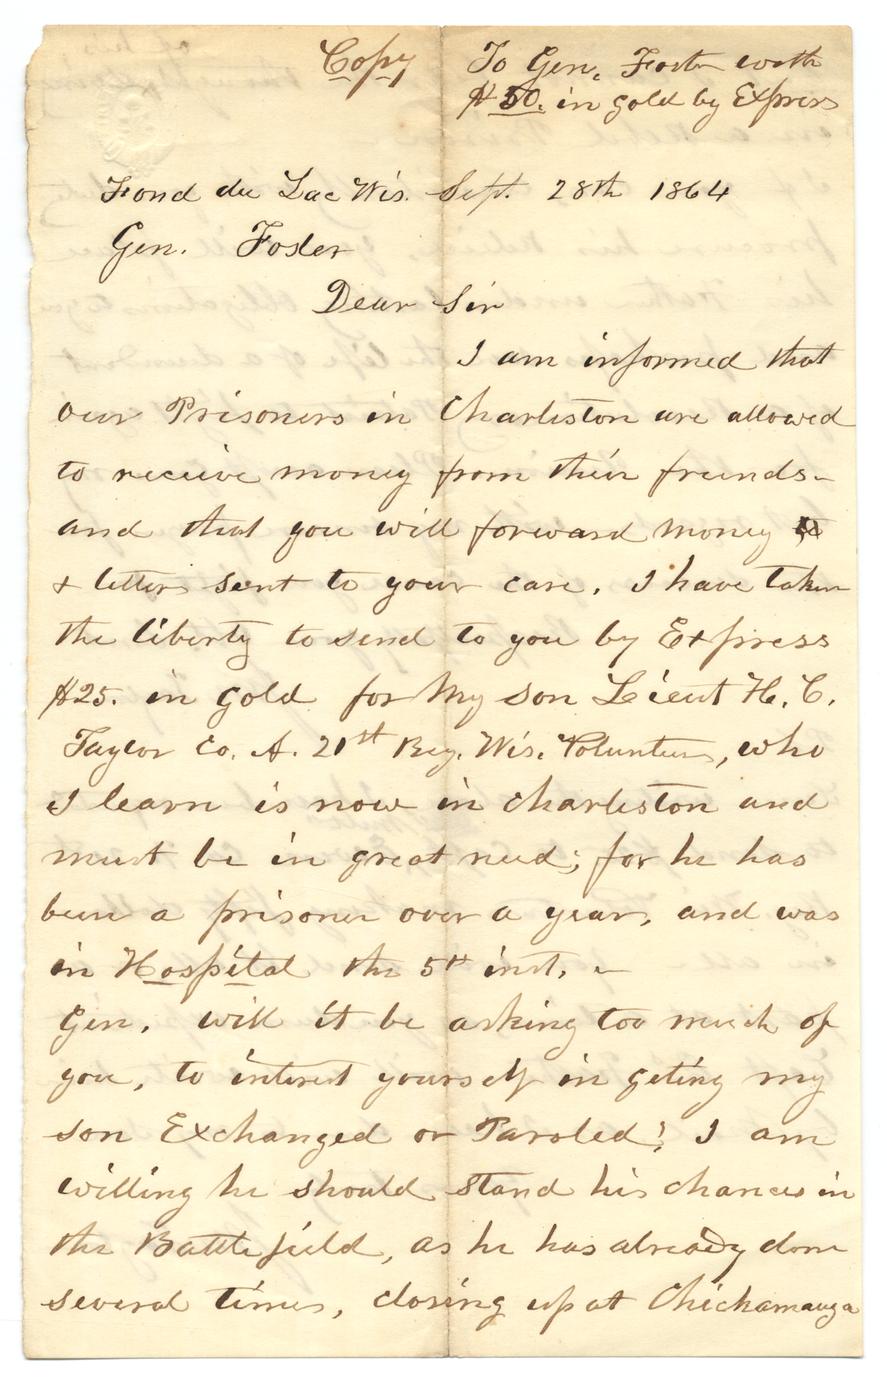 Copy
To Gen. Foster with
$50. in gold by Express
Fond du Lac Wis. Sept. 28th 1864
Gen. Foster
Dear Sir
I am informed that
our Prisoners in Charleston are allowed
to receive money from their friends-
and that you will forward money
& letters sent to your care. I have taken
the liberty to send to you by Express
$25. in gold for My son Lieut H. C.
Taylor Co. A. 21st Reg. Wis. Volunteers, who
I learn is now in Charleston and
must be in great need; for he has
been a prisoner over a year, and was
in Hospital the 5th inst. -
Gen. will it be asking too much of
you, to interest yourself in geting my
son Exchanged or Paroled? I am
willing he should stand his chances in
the Battlefield, as he has already done
several times, closing up at Chickamauga